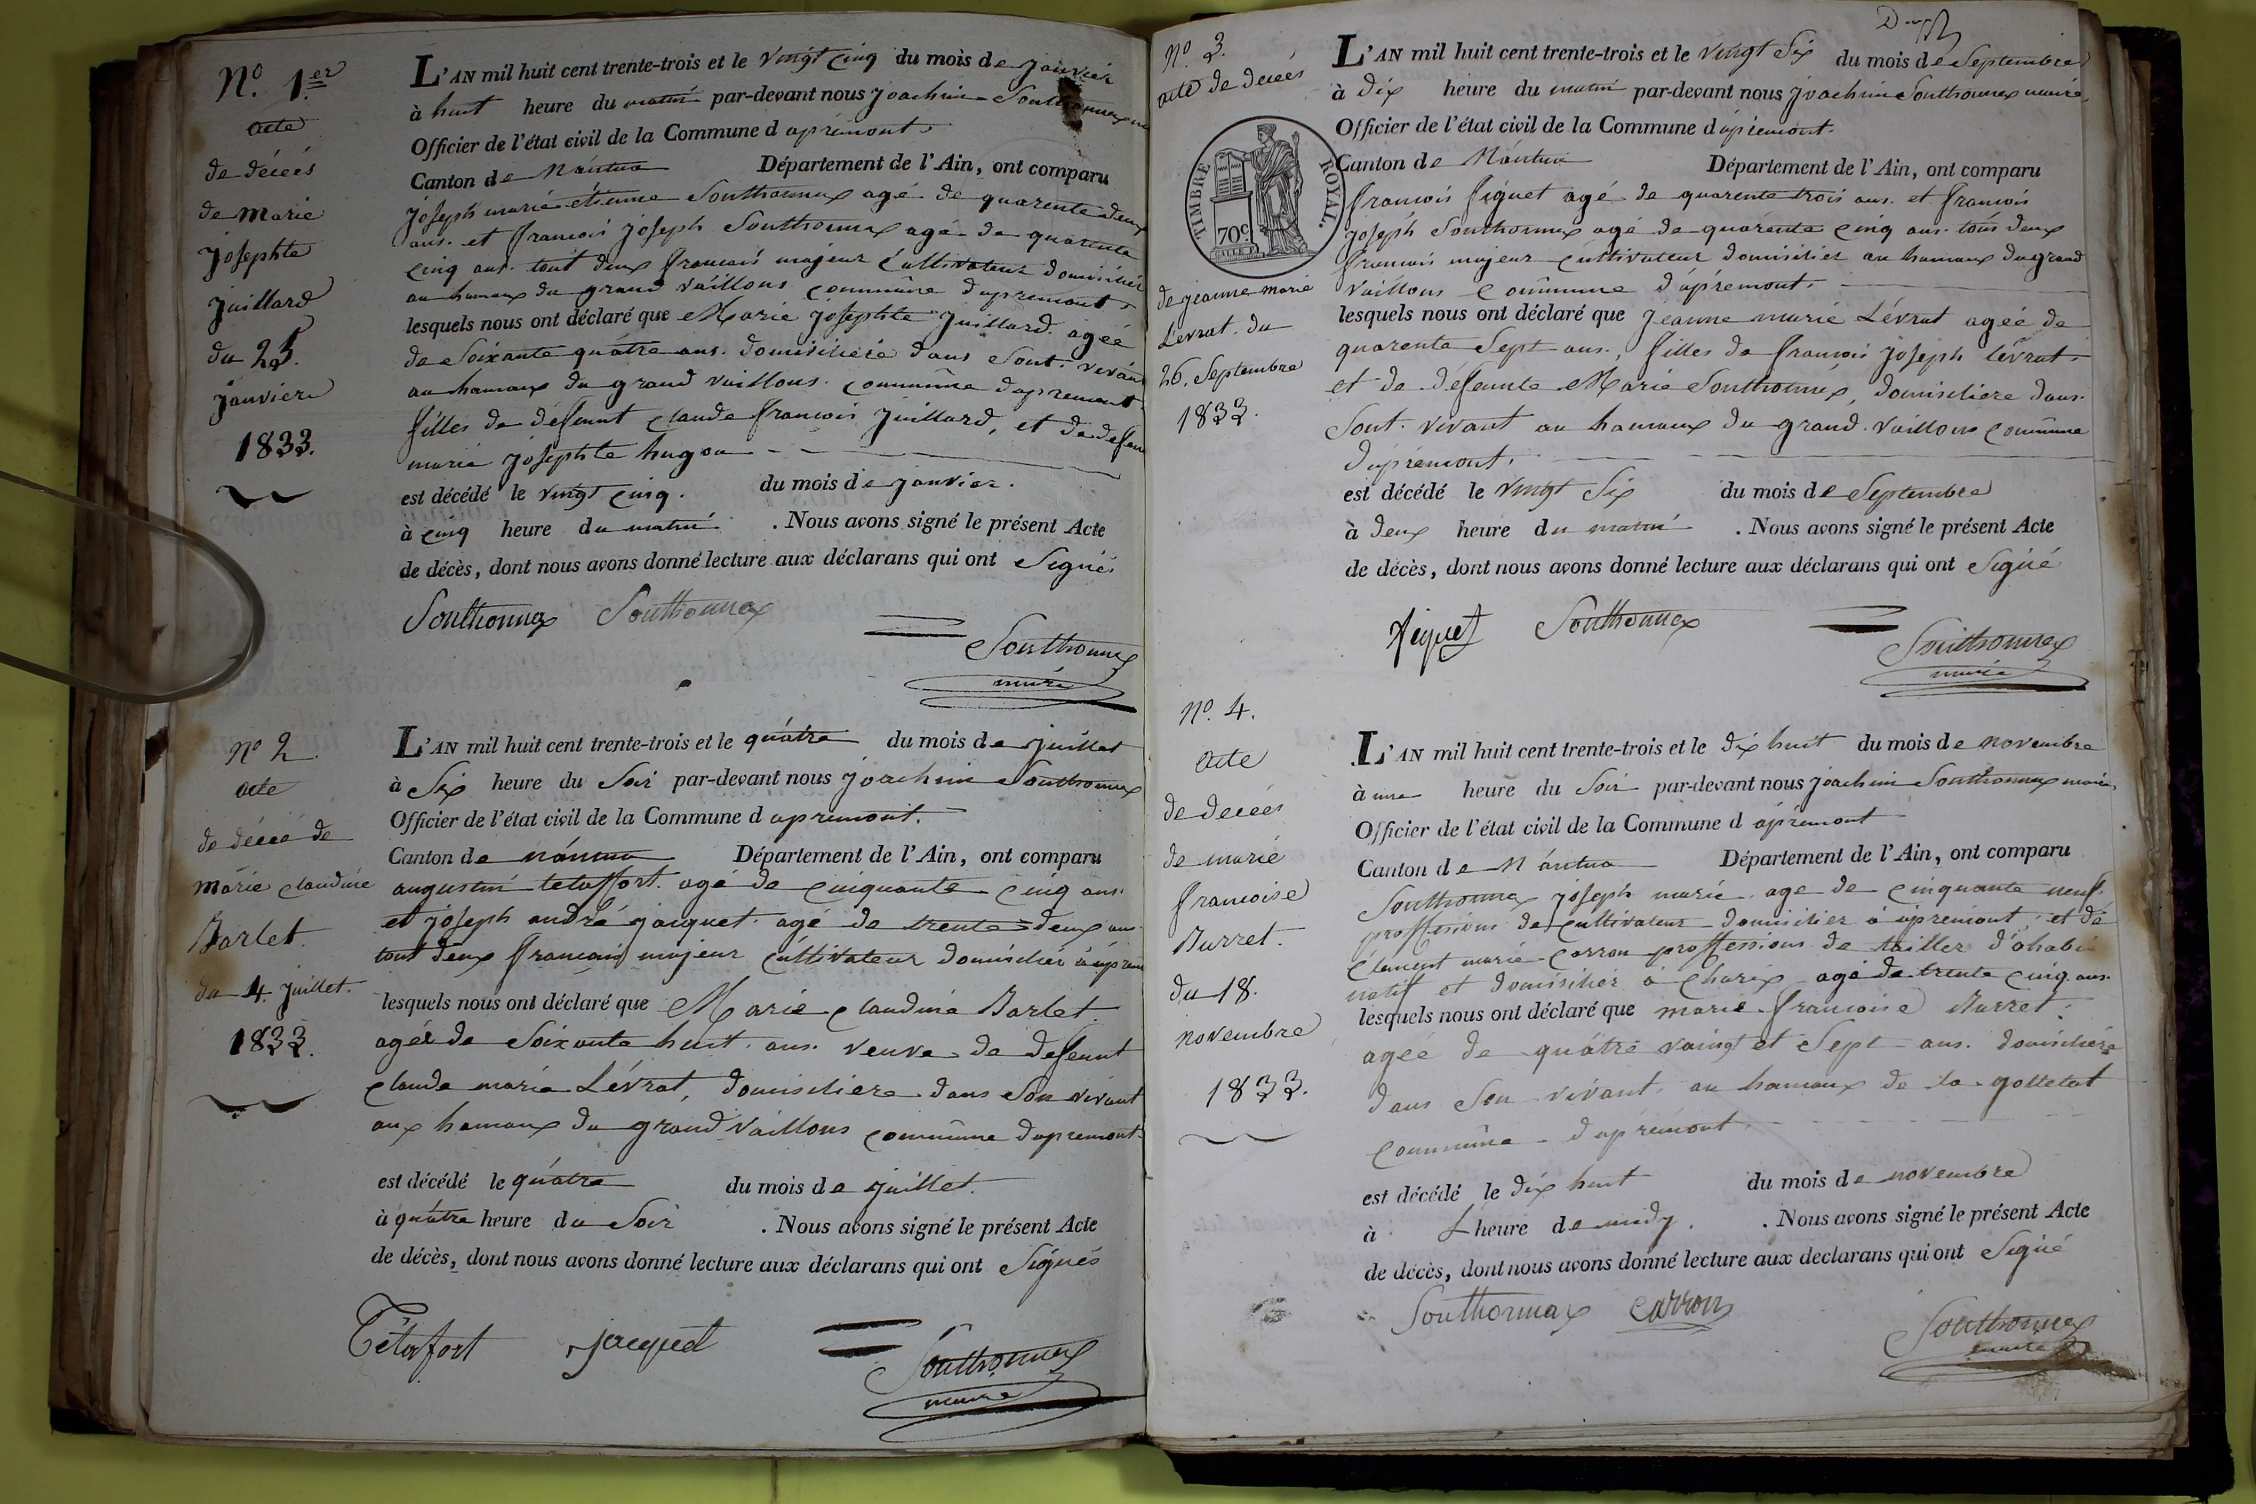 N.º 1.er
acte
de décés
de marie
josephte
juillard
du 25.
janvier
1833.
L'AN mil huit cent trente-trois et le vingt cinq du mois de janvier
à huit heure du matin par-devant nous joachim Southonnax
Officier de l'état civil de la Commune d apremont.
Canton de Nantua Département de l'Ain, ont comparu
joseph marie étienne Southonnax agé de quarente deux
ans. et francois joseph Southonnax agé de quarente
cinq ans. tout deux francais majeur cultivateur domicilier
au hamaux du grand vaillons commune d'apremont.
lesquels nous ont déclaré que Marie josephte juillard. agée
de Soixante quatre ans. domiciliére dans Sont. vivant
au hamaux du grand vaillons. commune d'apremont
filles de defeunt claude francois juillard, et de defeun
marie josephte hugon
est décédé le vingt cinq. du mois de janvier.
à cinq heure du matin . Nous avons signé le présent Acte
de décès, dont nous avons donné lecture aux déclarans qui ont Signés
Southonnax Southonnax
Southonnax
maire
Nº 2
acte
de décéé de
marie claudine
Barlet.
du 4. juillet.
1833.
L'AN mil huit cent trente-trois et le quatre du mois de juillet
à Six heure du Soir par-devant nous joachim Southonnax
Officier de l'état civil de la Commune d apremont.
Canton de nantua Département de l'Ain, ont comparu
augustin tetaffort. agé de cinquante cinq ans.
et joseph andré jacquet. agé de trente deux ans
tout deux francais majeur cultivateur domicilier à aprem
lesquels nous ont déclaré que Marie claudine Barlet.
agée de Soixante huit. ans. veuve de defeunt
claude marie Lévrat, domiciliere dans Son vivant
aux hamaux du grand Vaillons commune d'apremont.
est décédé le quatre du mois de juillet.
à quatre heure du Soir . Nous avons signé le présent Acte
de décès, dont nous avons donné lecture aux déclarans qui ont Signés
Tétafort jacquet
Southonnax
maire
Nº. 3.
acte de decés
TIMBRE ROYAL.
70c.
de jeanne marie
Levrat. du
26. Septembre
1833.
L'AN mil huit cent trente-trois et le vingt Six du mois de Septembre
à dix heure du matin par-devant nous joachim Southonnax maire,
Officier de l'état civil de la Commune d'apremont.
Canton de Nantua Département de l'Ain, ont comparu
francois figuet agé de quarente trois ans. et francois
joseph Southonnax agé de quarente cinq ans. tous deux
francais majeur cultivateur domicilier au hamaux du grand
vaillons commune d'apremont.
lesquels nous ont déclaré que jeanne marie Lévrat agée de
quarente Sept ans., filles de francois joseph lévrat.
et de défeunte Marie Southonnax, domiciliere dans.
Sont. vivant au hamaux du grand. vaillons commune
d'apremont.
est décédé le vingt Six du mois de Septembre
à deux heure du matin . Nous avons signé le présent Acte
de décès, dont nous avons donné lecture aux déclarans qui ont Signé
figuet Southonnax
Southonnax
maire
Nº. 4.
acte
de decés
de marie
francoise
Burret.
du 18.
novembre
1833.
L'AN mil huit cent trente-trois et le dix huit du mois de novembre
à une heure du Soir par-devant nous joachim Southonnax maire,
Officier de l'état civil de la Commune d apremont
Canton de Nantua Département de l'Ain, ont comparu
Southonnax joseph marie age de cinquante neuf.
proffessions de cultivateur domicilier à apremont. et de
clement marie carron proffessions de tailler d'ohabis
natif et domicilier à charix agé de trente cinq ans.
lesquels nous ont déclaré que marie francoise Burret.
agée de quatre vaingt et Sept ans. domiciliére
dans Son vivant. au hamaux de la gottetat
commune d'apremont.
est décédé le dix huit du mois de novembre
à L heure de midy. . Nous avons signé le présent Acte
de décès, dont nous avons donné lecture aux déclarans qui ont Signé
Southonnax carron
Southonnax
maire